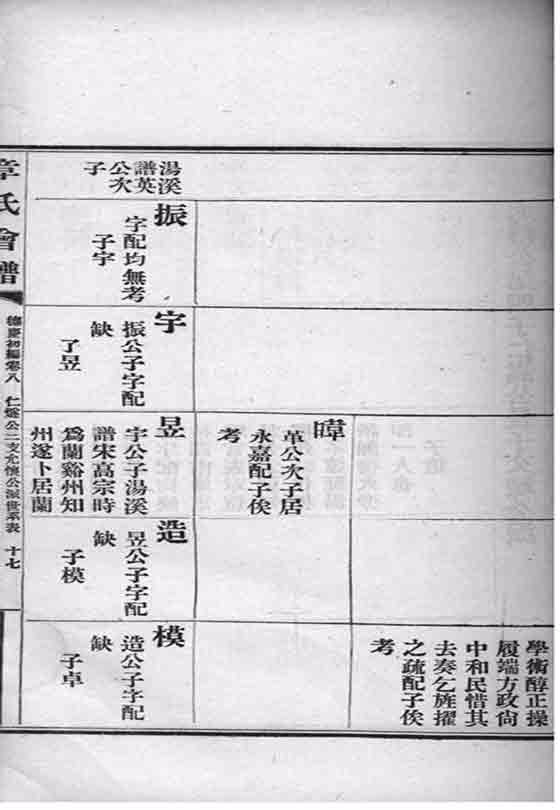 學術醇正操
履端方政尙
中和民惜其
去奏乞旌擢
之疏配子俟
考
暐
革公次子居
永嘉配子俟
考
湯溪
譜英
公次
子
振
字配均無考
子宇
宇
振公子字配
缺
子昱
昱
宇公子湯溪
譜宋高宗時
爲蘭谿州知
州遂卜居蘭
造
昱公子字配
缺
子模
模
造公子字配
缺
子卓
章氏會譜
德慶初編卷八 仁燧公二支允懷公派世系表 十七